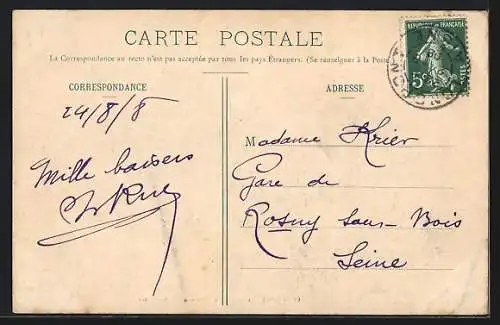 CARTE POSTALE
La Correspondance au recto n'est pas acceptée par tous les pays Étrangers. (Se renseigner à la Poste
CORRESPONDANCE
ADRESSE
RÉPUBLIQUE FRANÇAISE
5c
24/8/8
Mille baisers
Madame Krier
Gare de
Rosny sous-Bois
Seine